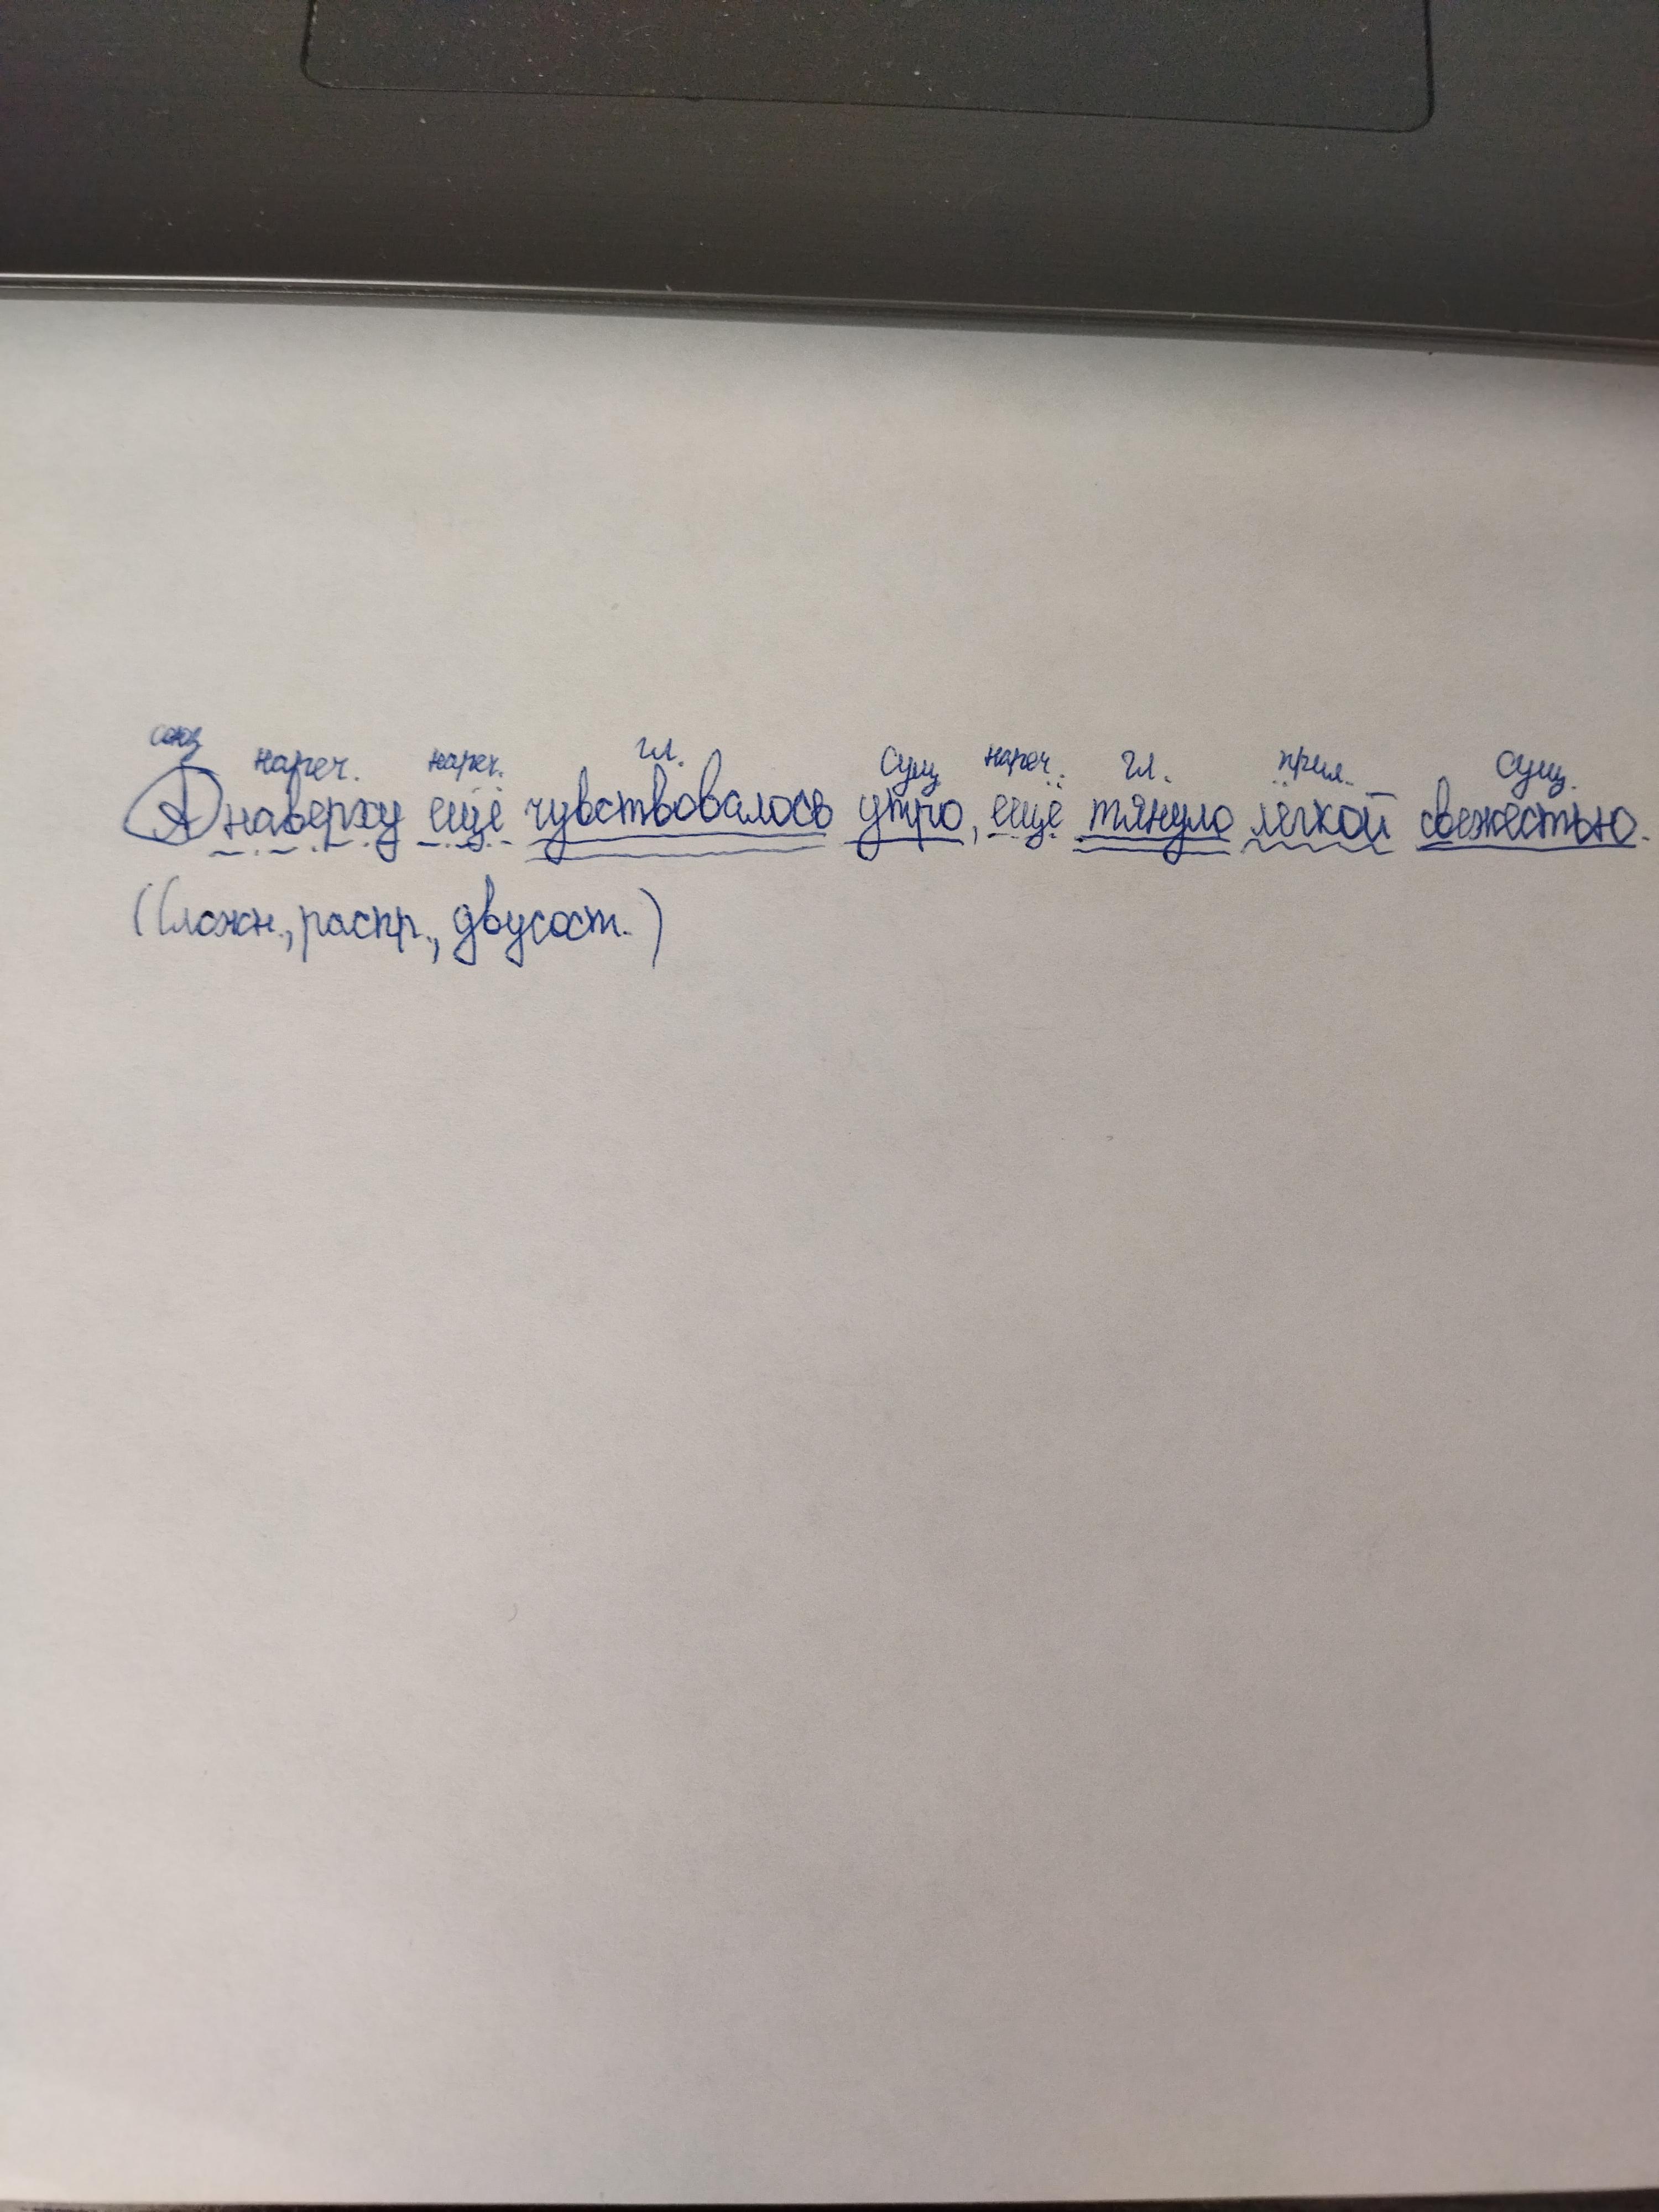 союз нареч. нареч. гл. сущ нареч. гл. прил. сущ.
А наверху ещё чувствовалось утро, ещё тянуло лёгкой свежестью.
(Сложн., распр., двусост.)